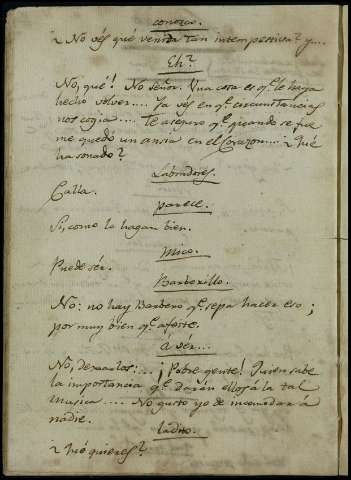 conozco.
¿No ves que venida tan intempestiva? y....
Eh?
No, qué! No señor. Una cosa es q.e le haya
hecho volver.... Ya ves en q.e circunstancias
nos cogia.... Te aseguro q.e quando se fue
me quedó un ansia en el Corazon.... ¿Qué
ha sonado?
Labradores.
Calla.
parece.
Si, como lo hagan bien.
Mico.
Puede sér.
Barberillo.
No: no hay Barbero q.e sepa hacer eso;
por muy bien q.e afeite.
a vér...
No, dexarlos:... ¡Pobre gente! Quien sabe
la importancia q.e darán ellos á la tal
musica.... No gusto yo de incomodar á
nadie.
ladito.
¿Qué quieres?